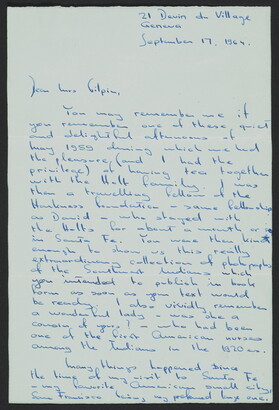 21 Devin du Village
Geneva
September 17, 1964.
Dear Mrs Gilpin,
You may remember me if
you remember one of those quiet
and delightful afternoons of
May 1959 during which we had
the pleasure (and I had the
privilege) of having tea together
with the Hall family. I was
then a travelling fellow of the
Harkness Foundation – same fellowship
as David – who stayed with
the Halls for about a month or so
in Santa Fe. You were then kind
enough to show us this really
extraordinary collection of photographs
of the Southwest Indians which
you intended to publish in book
form as soon as your text would
be ready. I also vividly remember
a wonderful lady – was she a
cousin of yours? – who had been
one of the first American nurses
among the Indians in the 1920es.
Many things happened since
the time of my visit to Santa Fe
– my favorite American small city,
San Francisco being my preferred large one.